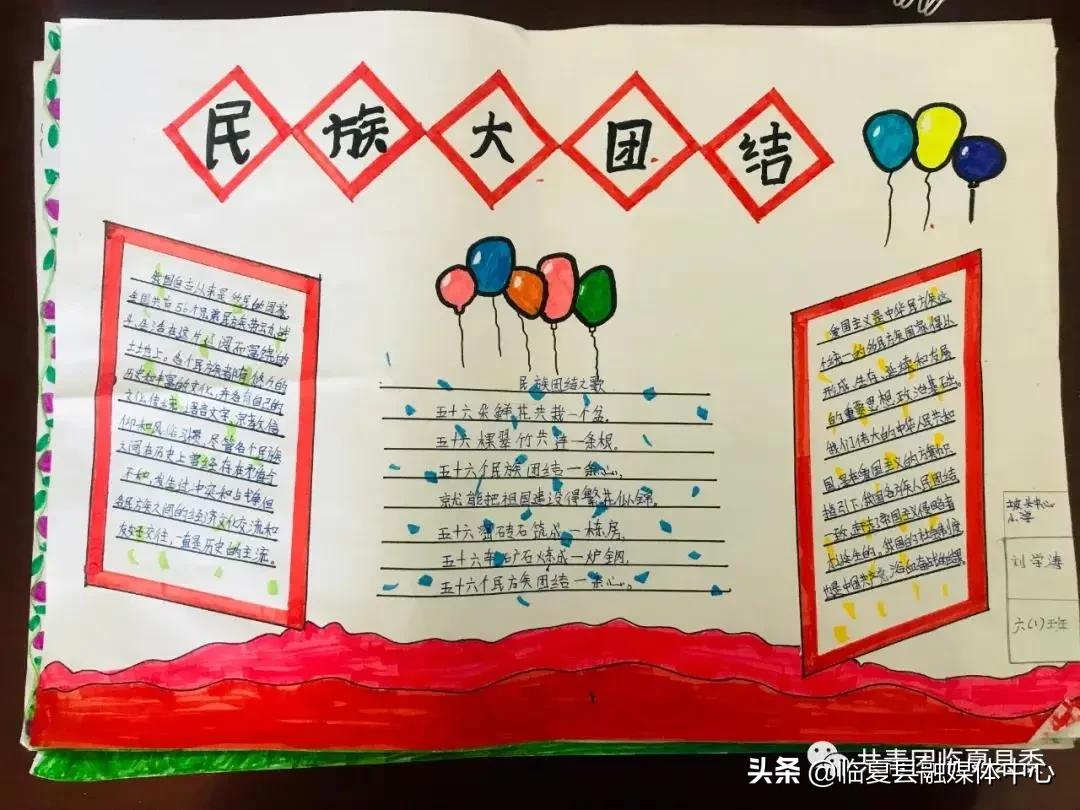 民族大团结
我国自古以来是多民族国家
全国共有56个兄弟民族劳动、战
斗、生活在这片辽阔而富饶的
土地上。各个民族都有悠久的
历史和丰富的文化,并各有自己的
文化传统、语言文字、宗教信
仰和风俗习惯。尽管各个民族
之间在历史上曾经存在矛盾与
不和,发生过冲突和战争但
各民族之间的经济文化交流和
友好交往,一直是历史的主流。
民族团结之歌
五十六朵鲜花共栽一个盆。
五十六棵翠竹共连一条根。
五十六个民族团结一条心,
京尤能把祖国建设得繁花似锦。
五十六密砖石筑成一栋房,
五十六车矿石炼成一炉钢,
五十六个民族团结一条心。
爱国主义是中华民族这
个统一的多民族国家得以
形成、生存、延续和发展
的重要思想、政治基础。
我们伟大的中华人民共和
国,是在爱国主义的旗帜
指引下,我国各族人民团结
一致,赶走了帝国主义侵略者
才诞生的。我国的社会制度
也是中国共产党,浴血奋战的结果
坡头中心
小学
刘学涛
六(1)班
共青团临夏县委
头条 @临夏县融媒体中心